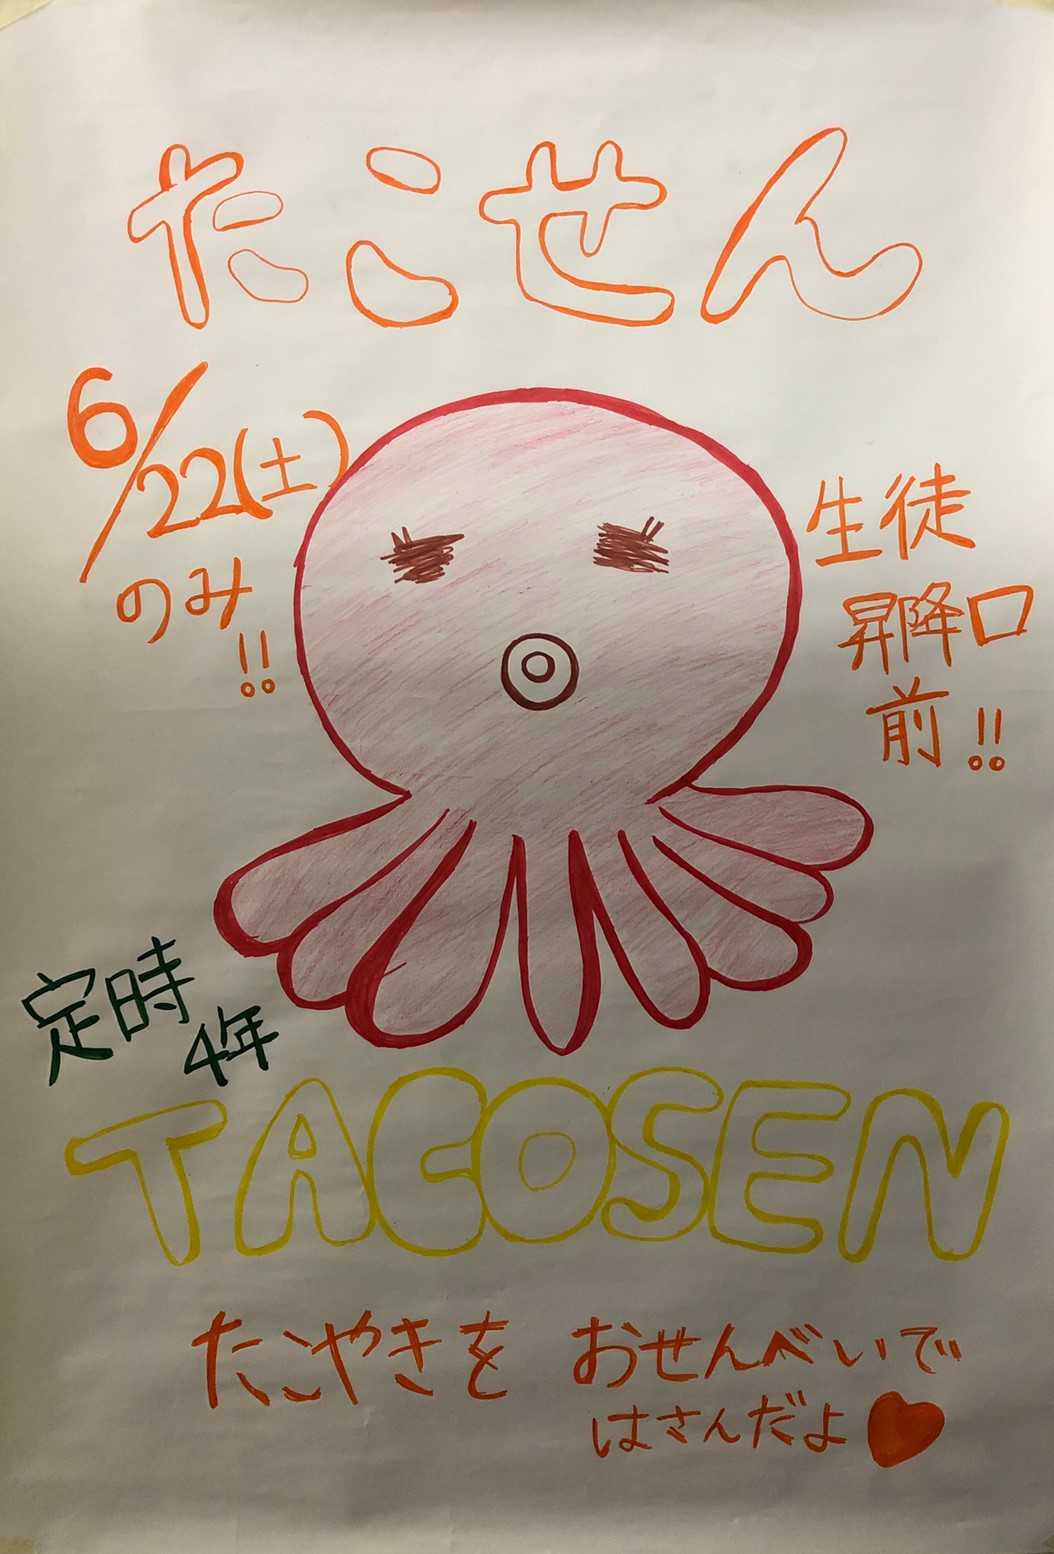 たこせん
6/22(土)
のみ!!
生徒
昇降口
前!!
定時
4年
TACOSEN
たこやきを おせんべいで
はさんだよ